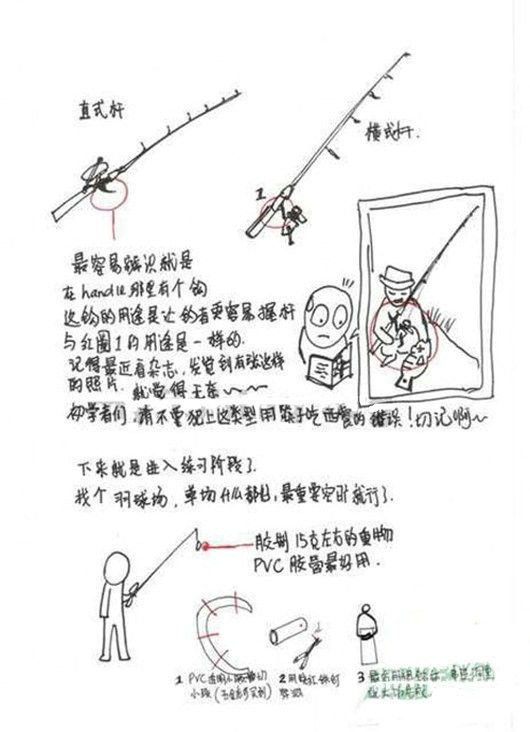 直式杆
横式杆.
1
最容易辨识就是
在handle那里有个钩
这钩的用途是让钓者更容易握杆
与红圈1的用途是一样的.
记得最近看杂志，发觉到有张这样
的照片. 就觉得无奈~~
初学者们，请不要犯上这类型用筷子吃西餐的错误！切记啊~
下来就是进入练习阶段了.
找个羽球场，单场 都能，最重要空旷就行了.
胶制15克左右的重物
PVC胶管最好用.
1 PVC 透明 切
小段(五金店可买到)
2 用 钉
3